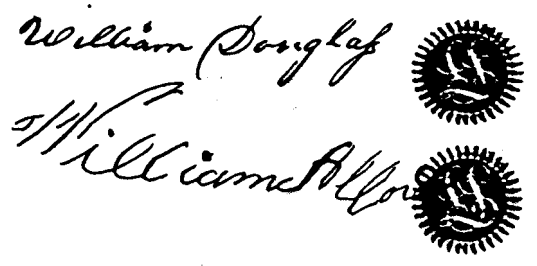 William Douglass
William Alford